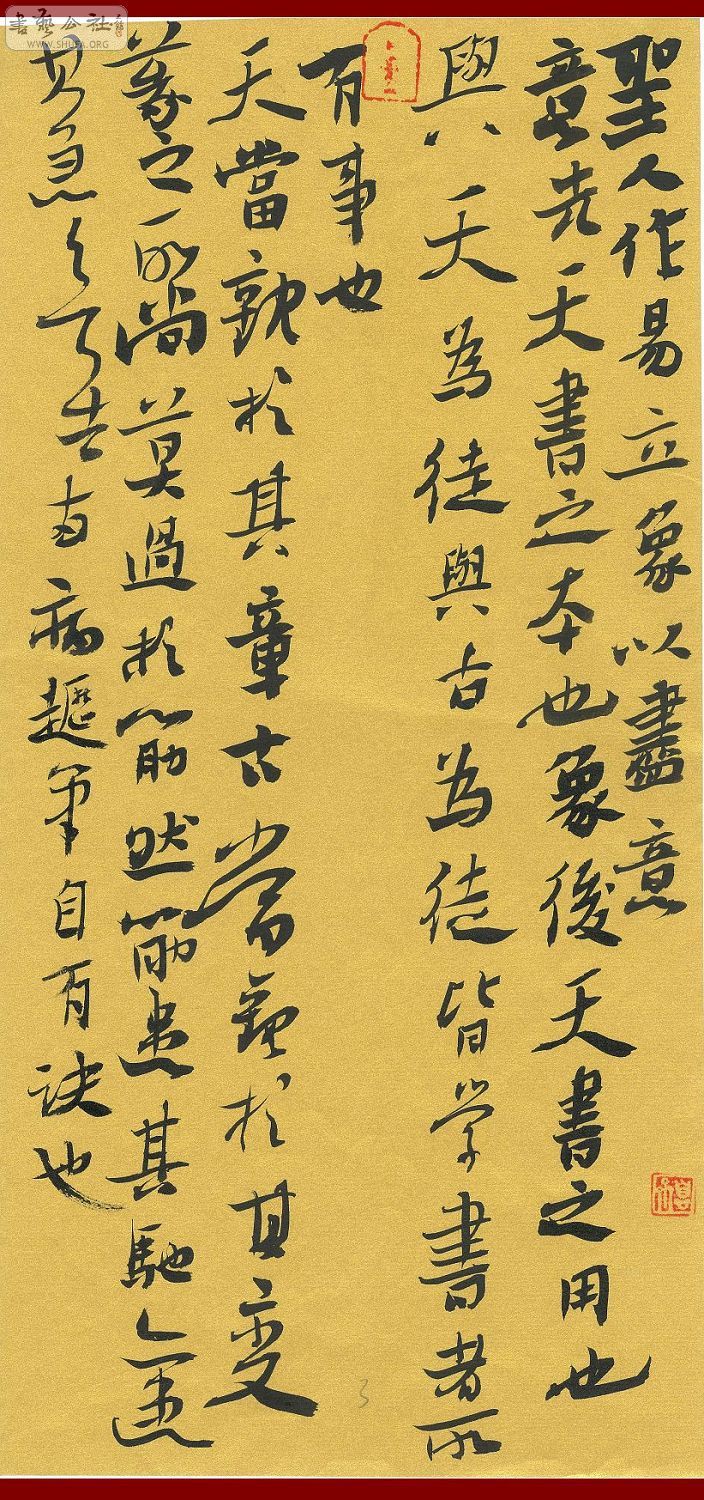 書藝公社
www.SHUFA.ORG
聖人作易立象以盡意
意先天書之本也象後天書之用也
與天為徒與古為徒皆学書者所
有事也
天當觀於其章古當觀於其變
篆之所尚莫過於筋然筋患其馳亦患
其急欲去両病趯筆自有訣也
3